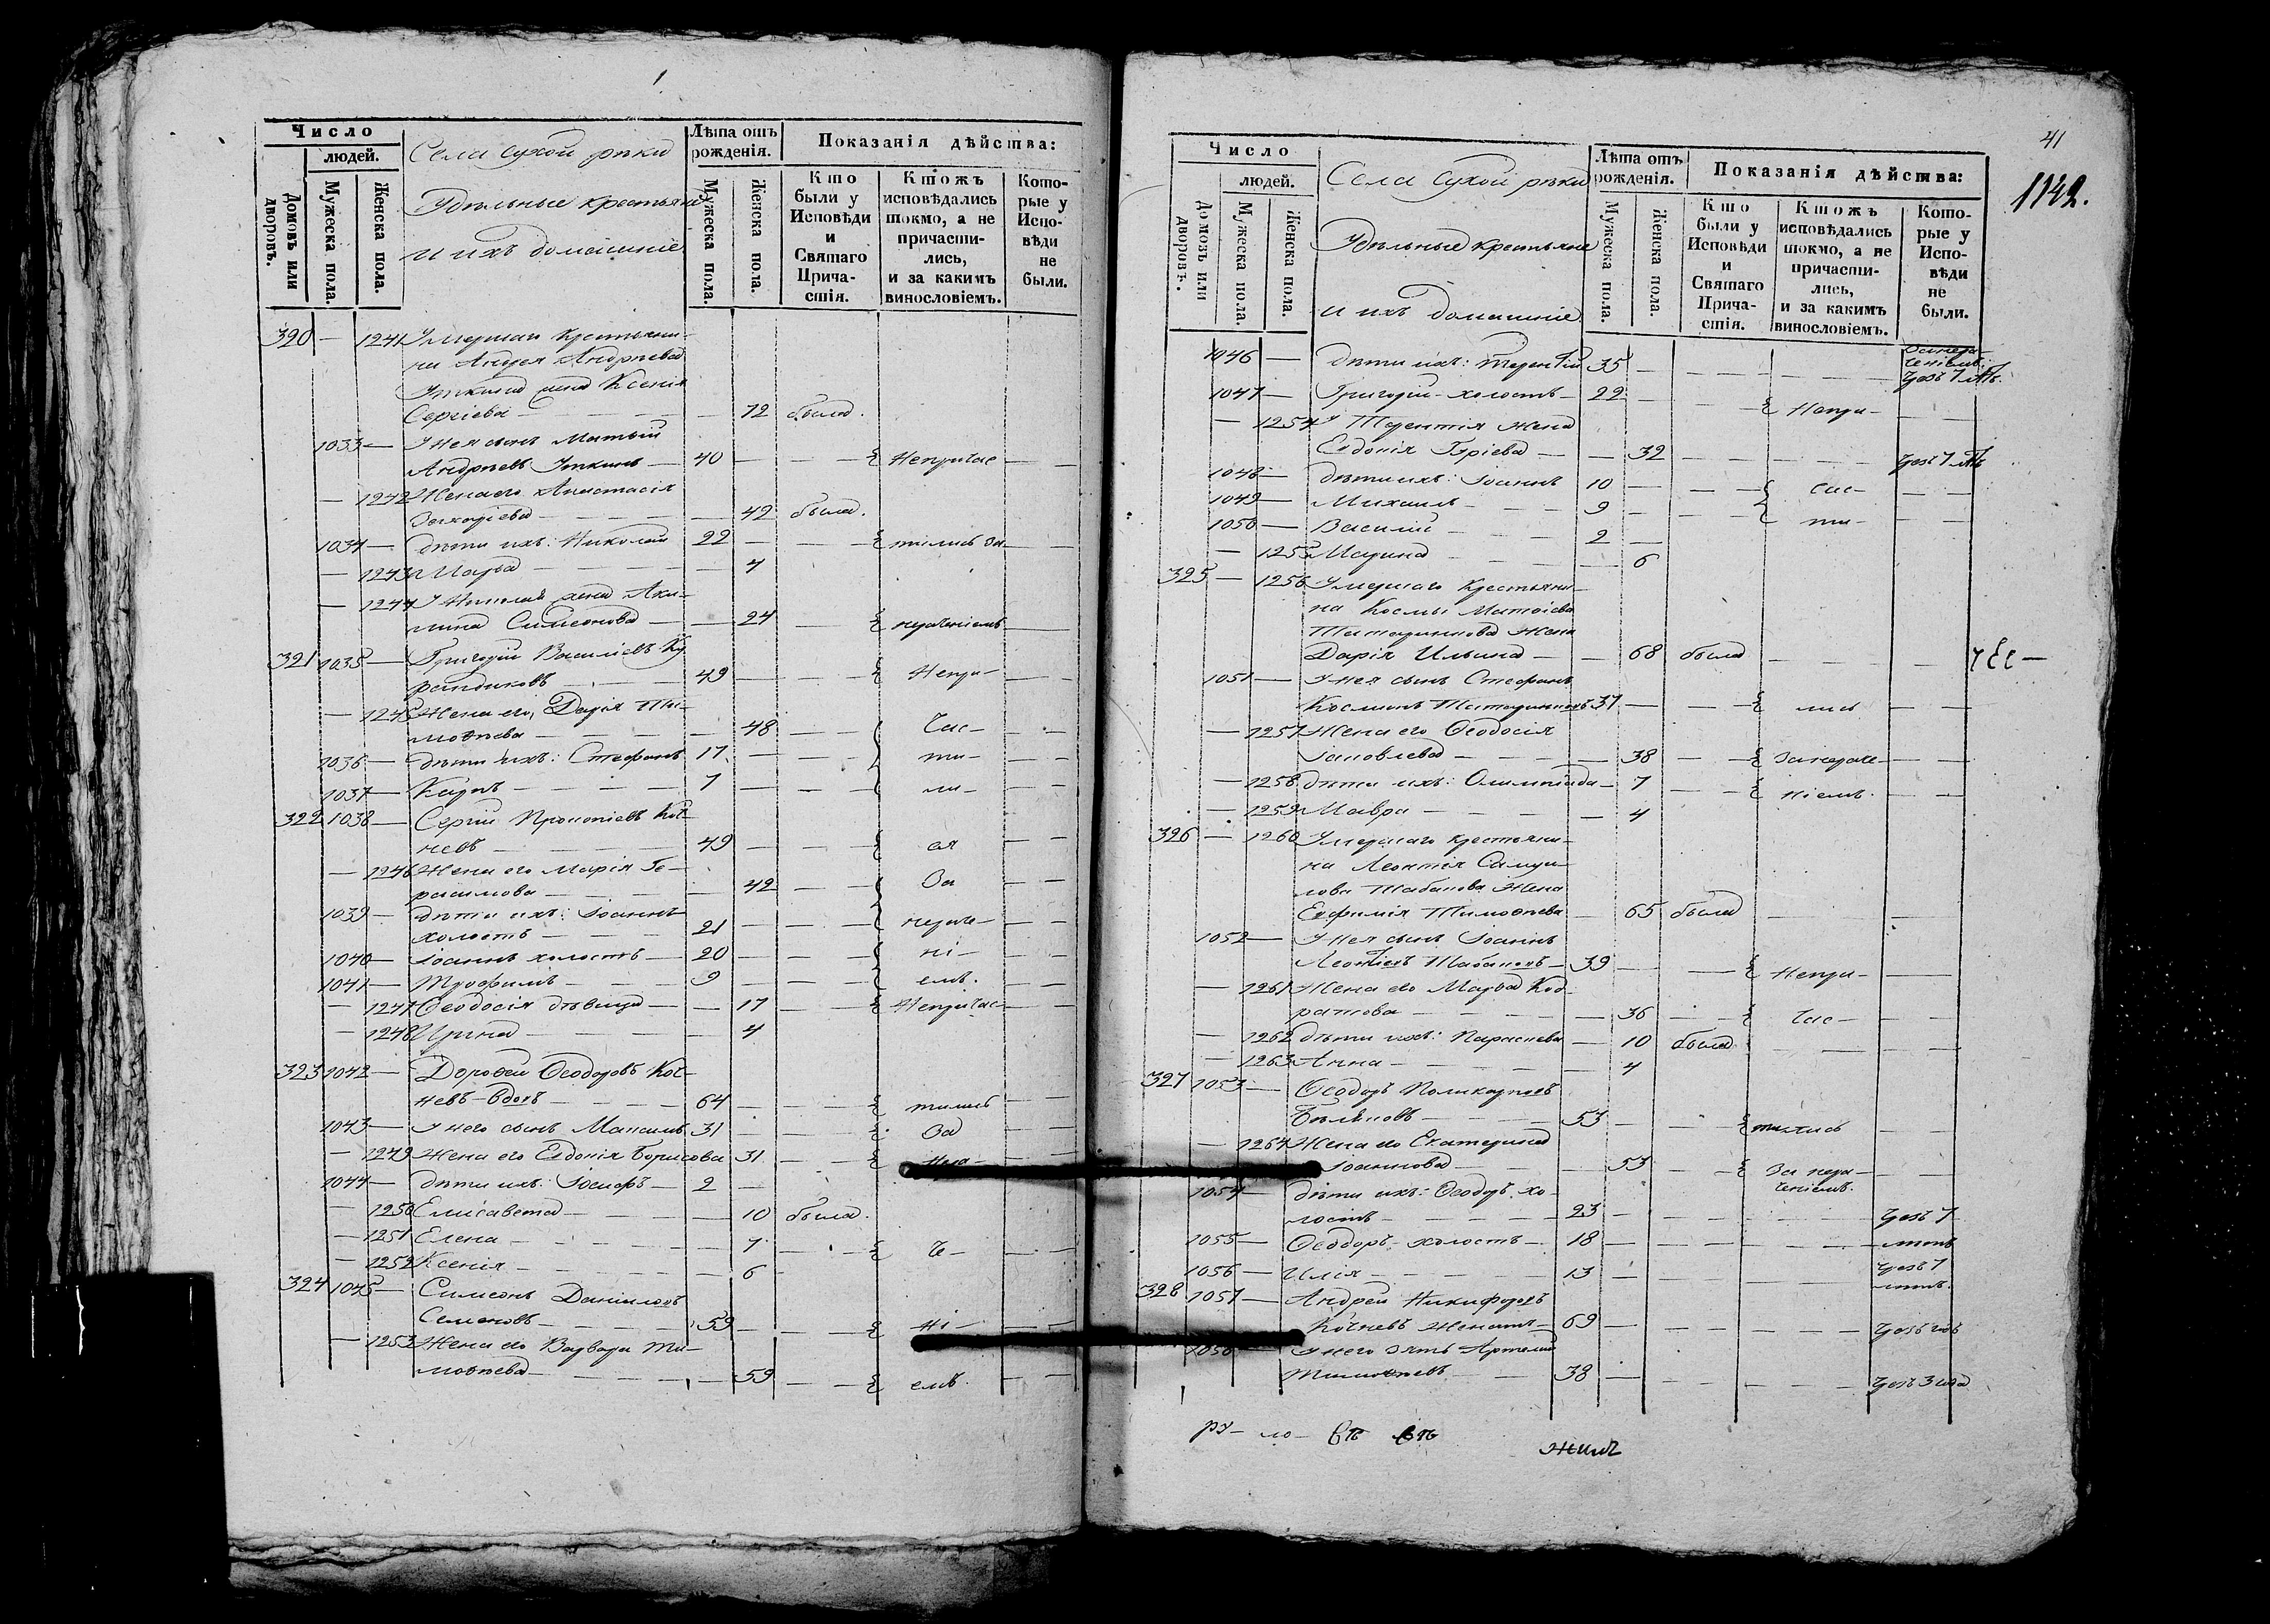 Число
людей.
Домовъ или дворовъ.
Мужеска пола.
Женска пола.
Села Сухой рѣки
Удѣльные крестьяне
и ихъ домашніе
Лѣта отъ рожденія.
Мужеска пола.
Женска пола.
Показанія дѣйства:
Кто были у Исповѣди и Святаго Причастія.
Ктожъ исповѣдались токмо, а не причастились, и за какимъ винословіемъ.
Которые у Исповѣди не были.
320 — 1241 Умершаго крестьяни-
на Андрея Андреева
Уткина жена Ксенія
Сергіева — — 72 была.
1033 — У нея сынъ Матвѣй
Андреевъ Уткинъ — 40 — — Непричас — —
— 1242 Жена его Анастасія
Захаріева — — 42 была.
1034 — дѣти ихъ: Николай 22 — — тились за — —
— 1243 Марѳа — — 4
— 1244 У Николая жена Аки-
лина Симеонова — — 24 — нераченіемъ —
321 1035 — Григорій Василіевъ Ку
рандиковъ — 49 — — Непри — —
— 1245 Жена его, Дарія Ти-
моѳеева — — 48 — час — —
1036 — дѣти ихъ: Стефанъ 17 — — ти — —
1037 — Карпъ — 7 — — ли — —
322 1038 — Сергій Прокопіевъ Коч-
невъ — 49 — — ся — —
— 1246 Жена его Марія Ге-
расимова — — 42 — За — —
1039 — дѣти ихъ: Іоаннъ
холостъ — 21 — — нераче — —
1040 — Іоаннъ холостъ — 20 — — ні — —
1041 — Трофимъ — 9 — — емъ. — —
— 1247 Ѳеодосія дѣвица — — 17 — Непричас — —
— 1248 Ирина — — 4
323 1042 — Дороѳей Ѳеодоровъ Коч-
невъ — вдовъ — 64 — — тились — —
1043 — У него сынъ Максимъ 31 — — За — —
— 1249 Жена его Евдокія Борисова 31 — — нера —
1044 — дѣти ихъ: Іосифъ — 2 —
— 1250 Елисавета — — 10 была.
— 1251 Елена — — 7 — — че — — —
— 1252 Ксенія — — 6
324 1045 — Симеонъ Даніиловъ
Семеновъ — 59 — — ні — —
— 1253 Жена его Варвара Ти-
моѳеева — — 59 — — емъ. — —
41
1142.
Число
людей.
Домовъ или дворовъ.
Мужеска пола.
Женска пола.
Села Сухой рѣки
Удѣльные крестьяне
и ихъ домашніе
Лѣта отъ рожденія.
Мужеска пола.
Женска пола.
Показанія дѣйства:
Кто были у Исповѣди и Святаго Причастія.
Ктожъ исповѣдались токмо, а не причастились, и за какимъ винословіемъ.
Которые у Исповѣди не были.
За нера
ченіемъ.
1046 — дѣти ихъ: Терентій 35 — — — 7 лѣтъ.
1047 — Григорій — холостъ — 22 — — Непри — — —
— 1254 У Терентія жена
Евдокія — — 32 — — — 7 лѣтъ
1048 — дѣти ихъ: Іоаннъ 10 — — час — — —
1049 — Михаилъ — 9 — — ти — — —
1050 — Василій — 2 —
— 1255 Марина — — 6
325 — 1256 Умершаго крестьяни-
на Космы Матѳіева
Татаринкова жена
Дарія Ильина — — 68 была — — —
1051 — У нея сынъ Стефанъ
Косминъ Татаринковъ 37 — — лись — —
— 1257 Жена его Ѳеодосія
Іаковлева — — 38 — За нераче — —
— 1258 дѣти ихъ: Олимпіада — 7 — ніемъ. — —
— 1259 Мавра — — 4
326 — 1260 Умершаго крестьяни-
на Леонтія Самуи-
лова Табанова жена
Евфимія Тимоѳеева — 65 была — —
1052 — У нея сынъ Іоаннъ
Леонтіевъ Табановъ — 39 — — Непри — —
— 1261 Жена его Марѳа Код-
ратова — — 36 — час — — —
— 1262 дѣти ихъ: Параскева — 10 была — — —
— 1263 Анна — — 4
327 1053 — Ѳеодоръ Поликарповъ
53 — — тились — —
— 1264 Жена его Екатерина
Іоаннова — — 53 — За нера — —
ченіемъ.
1054 — дѣти ихъ: Ѳеодоръ хо-
лостъ — 23 — — — 7
1055 — Ѳеодоръ холостъ — 18 — — — лѣтъ
1056 — Илія — 13 — — — 7
лѣтъ.
328 1057 — Андрей Никифоровъ
Кочневъ женатъ — 69 — — —
1058 — У него зять Артемій
Тимоѳеевъ — 38 — — — 3 года
ру — ло —